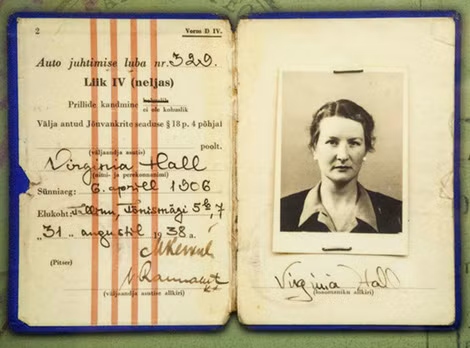 2 Vorm D IV.
Auto juhtimise luba nr. 329.
Liik IV (neljas)
Prillide kandmine kohuslik
ei ole kohuslik
Välja antud Jõuvankrite seaduse § 18 p. 4 põhjal
poolt.
(väljaandja asutis)
Virginia Hall
(nimi- ja perekonnanimi)
Sünniaeg: 6. aprill 1906
Elukoht: Tallinn, Tõnismägi 5
"31" augustil 1938 a.
(Pitser)
(väljaandja asutise allkiri)
Virginia Hall
(kasutaniku allkiri)